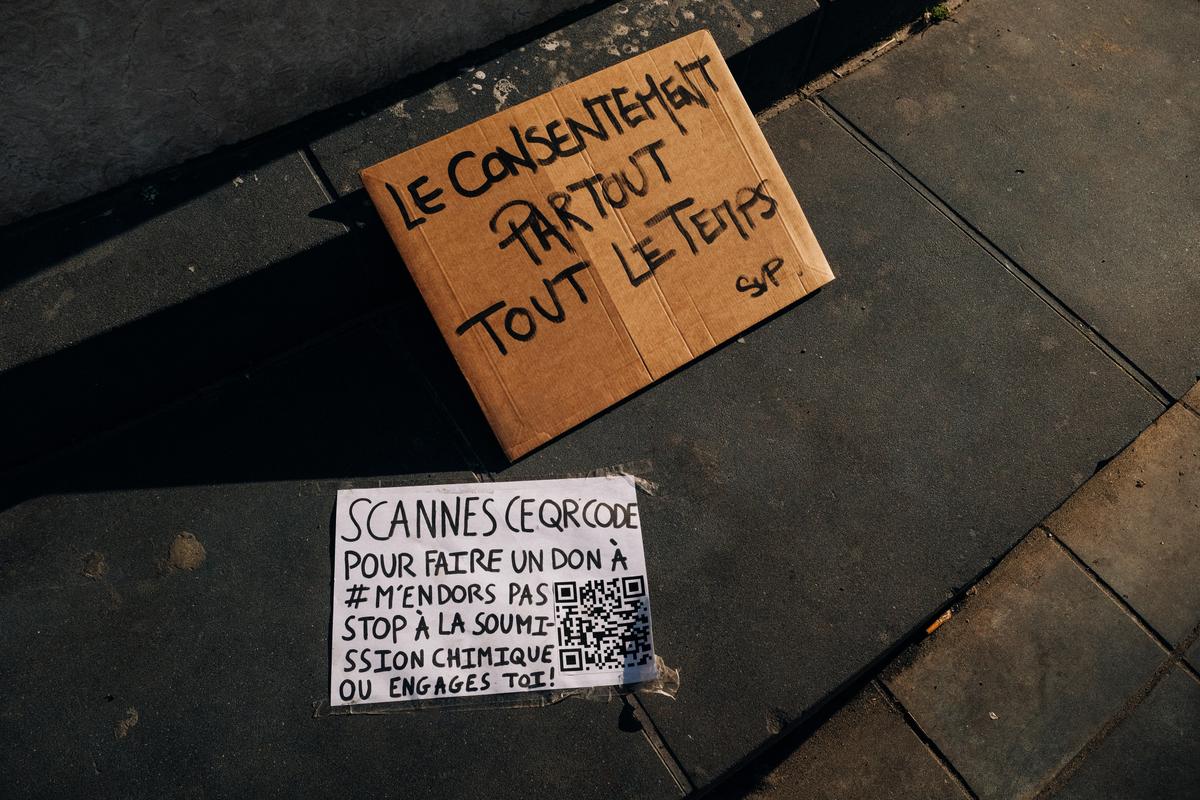 LE CONSENTEMENT
PARTOUT
TOUT LE TEMPS
SVP.
SCANNES CE QR CODE
POUR FAIRE UN DON À
# M'ENDORS PAS
STOP À LA SOUMI-
SSION CHIMIQUE
OU ENGAGES TOI!